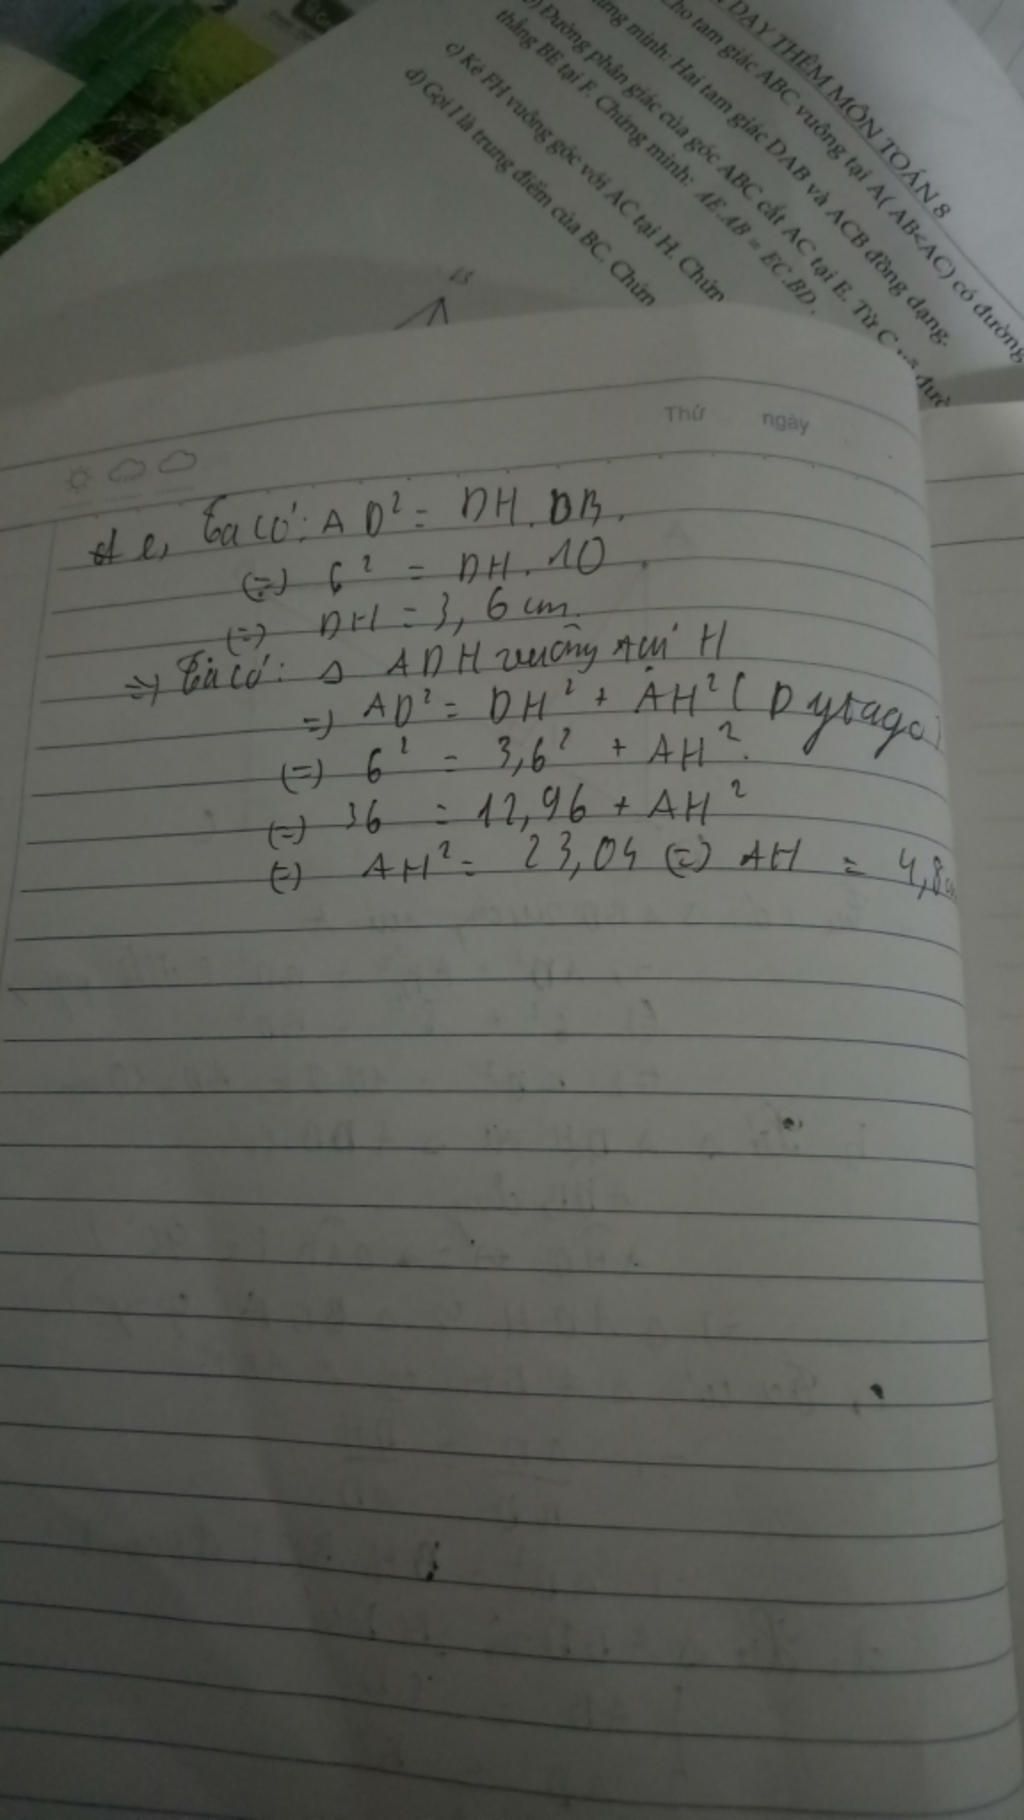 DẠY THÊM MÔN TOÁN 8
Cho tam giác ABC vuông tại A( AB<AC) có đường
minh: Hai tam giác DAB và ACB đồng dạng.
b) Đường phân giác của góc ABC cắt AC tại E. Từ C
thẳng BE tại F. Chứng minh: AE.AB = EC.BD.
c) Kẻ FH vuông góc với AC tại H. Chứn
d) Gọi I là trung điểm của BC. Chứn
B
Thứ ngày
e, Ta có: AD² = DH.DB.
(=) 6² = DH.10
(=) DH = 3,6 cm.
=) Ta có: Δ ADH vuông tại H
=) AD² = DH² + AH² ( Pytago)
(=) 6² = 3,6² + AH².
(=) 36 = 12,96 + AH²
(=) AH² = 23,04 (=) AH = 4,8